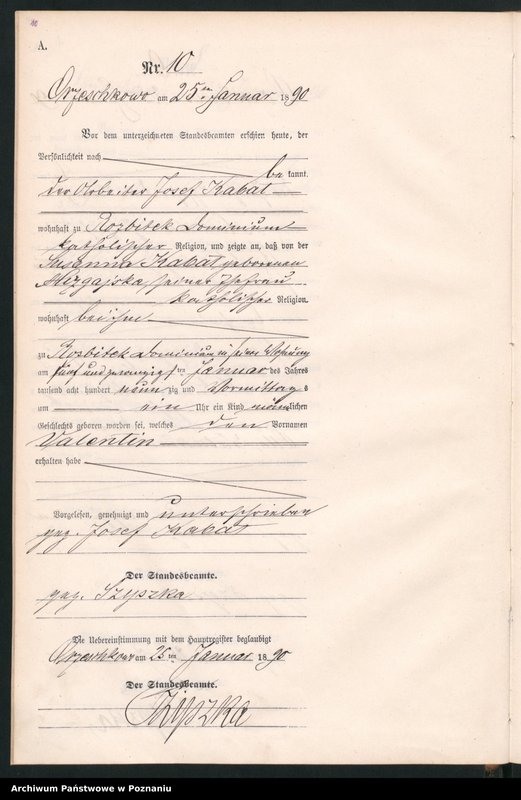 10
A.
Nr. 10
Orzeschkowo am 25ten Januar 1890
Vor dem unterzeichneten Standesbeamten erschien heute, der
Persönlichkeit nach
be kannt,
der Arbeiter Josef Kabat
wohnhaft zu Rozbitek Dominium
katholischer Religion, und zeigte an, daß von der
Susanna Kabat geborenen
seiner Ehefrau
katholischer Religion,
wohnhaft bei ihm
zu Rozbitek Dominium in seiner Wohnung
am fünf und zwanzigsten Januar des Jahres
tausend acht hundert neun zig und Vormittag s
um ein Uhr ein Kind männlichen
Geschlechts geboren worden sei, welches den Vornamen
Valentin
erhalten habe
Vorgelesen, genehmigt und unterschrieben
gez. Josef Kabat
Der Standesbeamte.
gez. Szyszka
Die Uebereinstimmung mit dem Hauptregister beglaubigt
Orzeschkowo am 25ten Januar 1890
Der Standesbeamte.
Szyszka
Archiwum Państwowe w Poznaniu